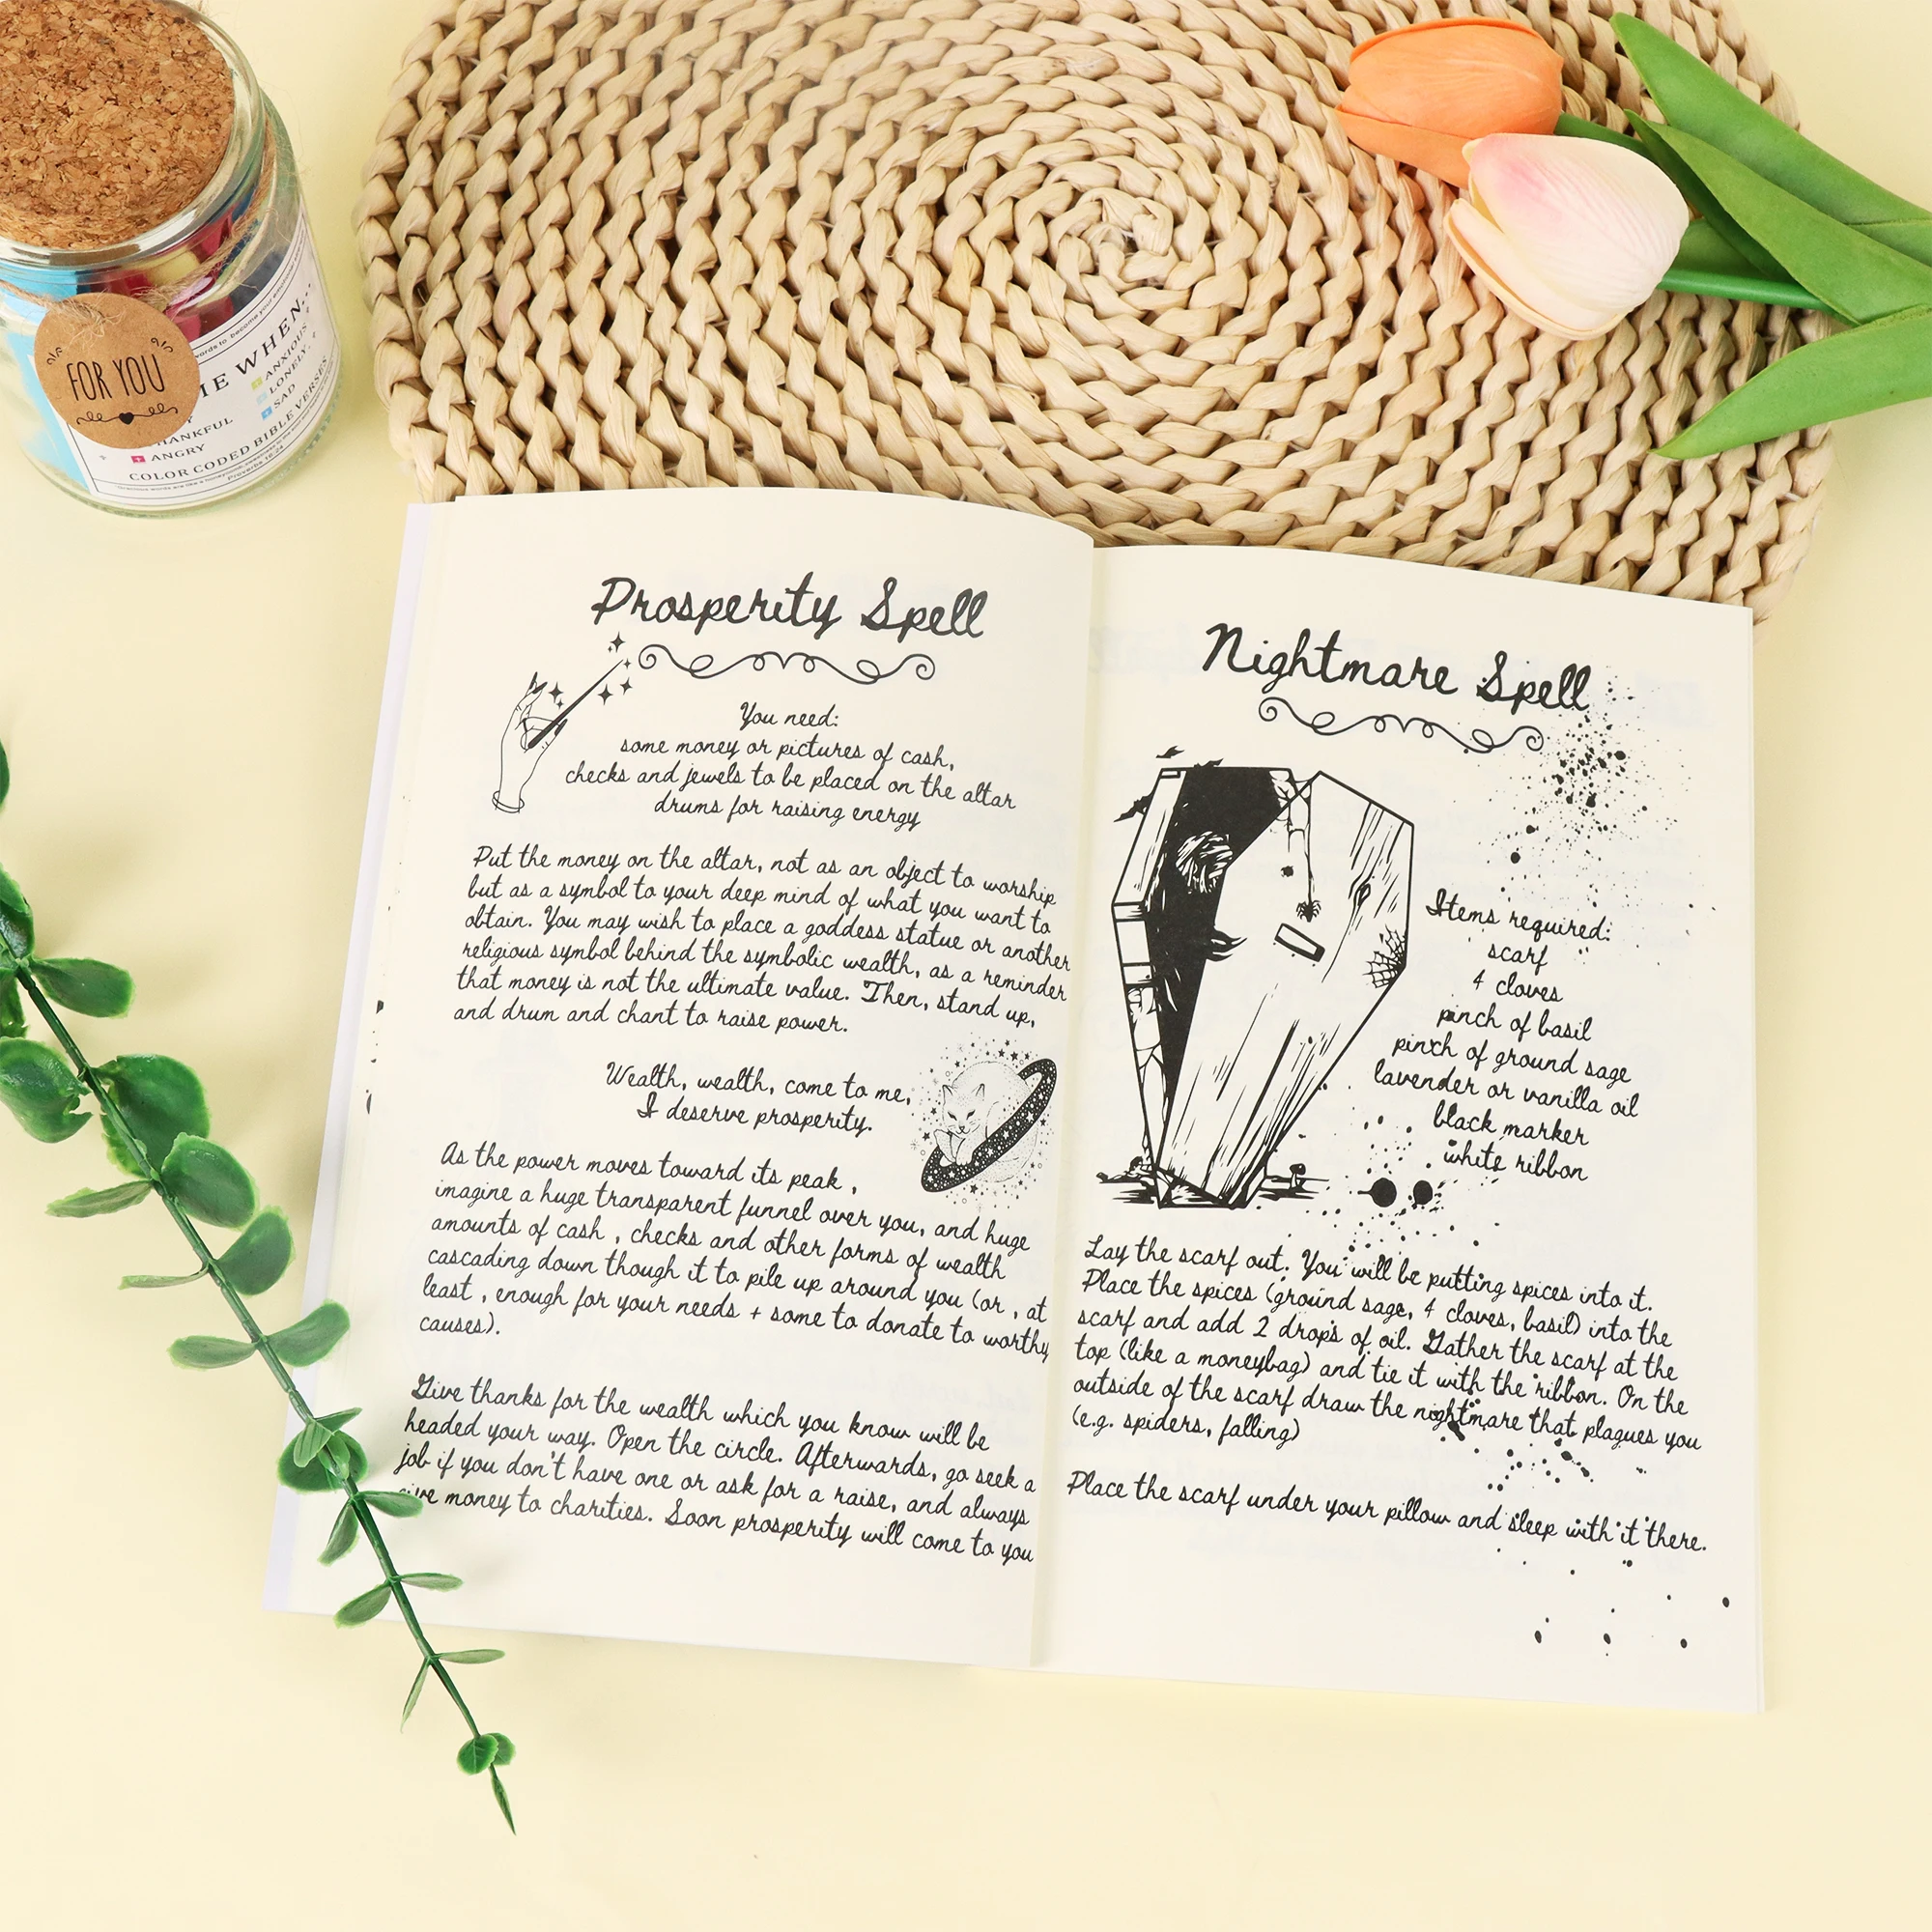 FOR YOU
words to become your emotional
ME WHEN...
ANXIOUS
LONELY
SAD
THANKFUL
ANGRY
COLOR CODED BIBLE VERSES
Proverbs 16:24
Prosperity Spell
You need:
some money or pictures of cash,
checks and jewels to be placed on the altar
drums for raising energy
Put the money on the altar, not as an object to worship
but as a symbol to your deep mind of what you want to
obtain. You may wish to place a goddess statue or another
religious symbol behind the symbolic wealth, as a reminder
that money is not the ultimate value. Then, stand up,
and drum and chant to raise power.
Wealth, wealth, come to me,
I deserve prosperity.
As the power moves toward its peak ,
imagine a huge transparent funnel over you, and huge
amounts of cash , checks and other forms of wealth
cascading down though it to pile up around you (or , at
least , enough for your needs + some to donate to worthy
causes).
Give thanks for the wealth which you know will be
headed your way. Open the circle. Afterwards, go seek a
job if you don't have one or ask for a raise, and always
give money to charities. Soon prosperity will come to you
Nightmare Spell
Items required:
scarf
4 cloves
pinch of basil
pinch of ground sage
lavender or vanilla oil
black marker
white ribbon
Lay the scarf out. You will be putting spices into it.
Place the spices (ground sage, 4 cloves, basil) into the
scarf and add 2 drops of oil. Gather the scarf at the
top (like a moneybag) and tie it with the ribbon. On the
outside of the scarf draw the nightmare that plagues you
(e.g. spiders, falling)
Place the scarf under your pillow and sleep with it there.